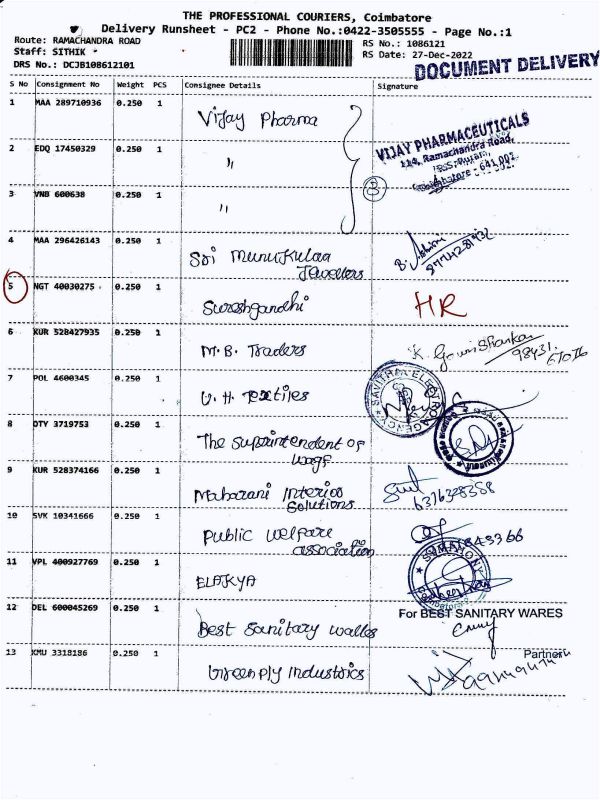 THE PROFESSIONAL COURIERS, Coimbatore
Delivery Runsheet - PC2 - Phone No.:0422-3505555 - Page No.:1
Route: RAMACHANDRA ROAD
Staff: SITHIK
DRS No.: DCJB108612101
RS No.: 1086121
RS Date: 27-Dec-2022
DOCUMENT DELIVERY
S No Consignment No Weight PCS Consignee Details Signature
1 MAA 289710936 0.250 1 Vijay Pharma
VIJAY PHARMACEUTICALS
Ramachandra Road,
Coimbatore - 641 002
2 EDQ 17450329 0.250 1 "
3 VNB 600638 0.250 1 "
3
4 MAA 296426143 0.250 1 Sri Munukulaa
Jewellers
5 NGT 40030275 0.250 1 Sureshgandhi HR
6 KUR 528427935 0.250 1 M.B. Traders K. Gowri Shankar
98431
67076
7 POL 4600345 0.250 1 U.H. Textiles
SAVITHRA ELECTRO AGENCY
8 OTY 3719753 0.250 1 The Suprintendent of
wags
9 KUR 528374166 0.250 1 Maharani Interios
Solutions
6376328358
10 SVK 10341666 0.250 1 Public welfare
association
11 VPL 400927769 0.250 1 ELAKYA
12 DEL 600045269 0.250 1 Best Sanitary walles
For BEST SANITARY WARES
Partner
13 KMU 3318186 0.250 1 Greenply Industries